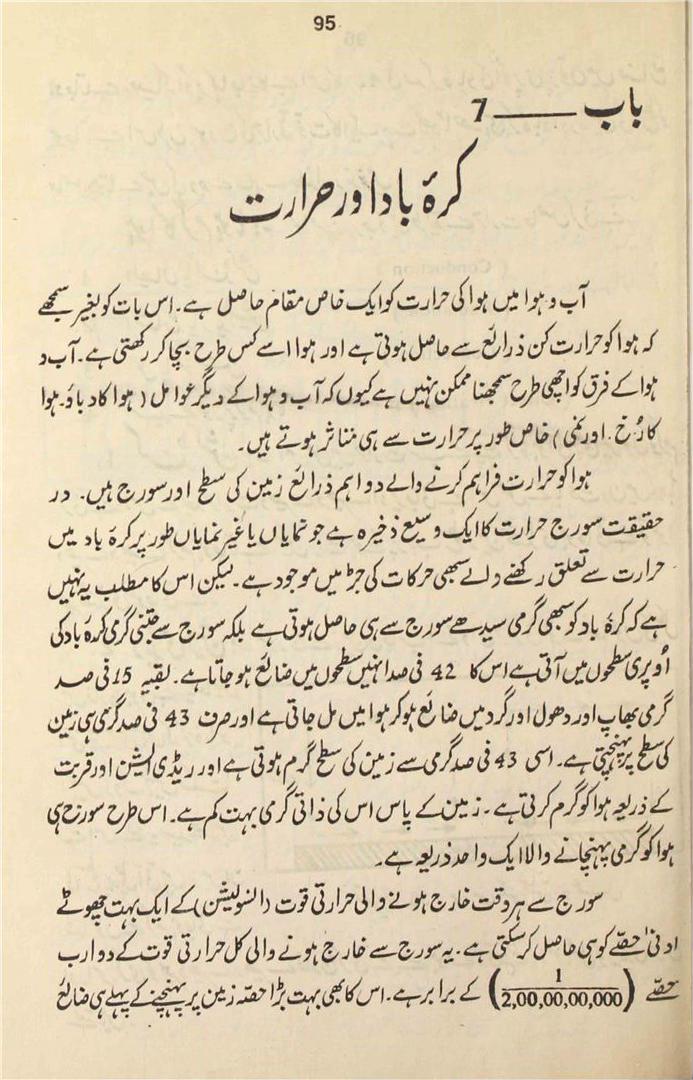 95
باب ـــــ 7
کرۂ باد اور حرارت
آب و ہوا میں ہوا کی حرارت کو ایک خاص مقام حاصل ہے۔ اس بات کو بغیر سمجھے
کہ ہوا کو حرارت کن ذرائع سے حاصل ہوتی ہے اور ہوا اسے کس طرح بچا کر رکھتی ہے۔ آب و
ہوا کے فرق کو اچھی طرح سمجھنا ممکن نہیں ہے کیوں کہ آب و ہوا کے دیگر عوامل (ہوا کا دباؤ۔ ہوا
کا رُخ۔ اور نمی) خاص طور پر حرارت سے ہی متاثر ہوتے ہیں۔
ہوا کو حرارت فراہم کرنے والے دو اہم ذرائع زمین کی سطح اور سورج ہیں۔ در
حقیقت سورج حرارت کا ایک وسیع ذخیرہ ہے جو نمایاں یا غیر نمایاں طور پر کرۂ باد میں
حرارت سے تعلق رکھنے والے سبھی حرکات کی جڑ میں موجود ہے۔ لیکن اس کا مطلب یہ نہیں
ہے کہ کرۂ باد کو سبھی گرمی سیدھے سورج سے ہی حاصل ہوتی ہے بلکہ سورج سے جتنی گرمی کرۂ باد کی
اُوپری سطحوں میں آتی ہے اس کا 42 فی صد انہیں سطحوں میں ضائع ہو جاتا ہے۔ بقیہ 15 فی صد
گرمی بھاپ اور دھول اور گرد میں ضائع ہو کر ہوا میں مل جاتی ہے اور صرف 43 فی صد گرمی ہی زمین
کی سطح پر پہنچتی ہے۔ اسی 43 فی صد گرمی سے زمین کی سطح گرم ہوتی ہے اور ریڈی ایشن اور قربت
کے ذریعہ ہوا کو گرم کرتی ہے۔ زمین کے پاس اس کی ذاتی گرمی بہت کم ہے۔ اس طرح سورج ہی
ہوا کو گرمی پہنچانے والا ایک واحد ذریعہ ہے۔
سورج سے ہر وقت خارج ہونے والی حرارتی قوت (انسولیشن) کے ایک بہت چھوٹے
ادنیٰ حصّے کو ہی حاصل کر سکتی ہے۔ یہ سورج سے خارج ہونے والی کل حرارتی قوت کے دو ارب
حصّے (1/2,00,00,00,000) کے برابر ہے۔ اس کا بھی بہت بڑا حصّہ زمین پر پہنچنے کے پہلے ہی ضائع